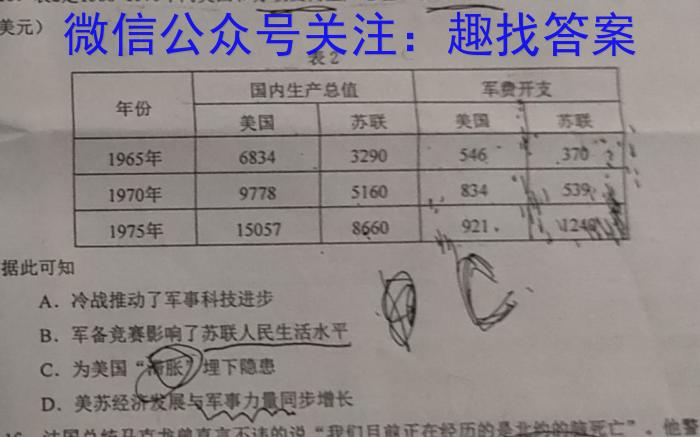 美元）
微信公众号关注：趣找答案
表2
年份 国内生产总值 军费开支
美国 苏联 美国 苏联
1965年 6834 3290 546 370
1970年 9778 5160 834 539
1975年 15057 8660 921 1240
据此可知
A．冷战推动了军事科技进步
B．军备竞赛影响了苏联人民生活水平
C．为美国“滞胀”埋下隐患
D．美苏经济发展与军事力量同步增长
法国总统马克龙曾直言不讳的说“我们目前正在经历的是北约的脑死亡”。他